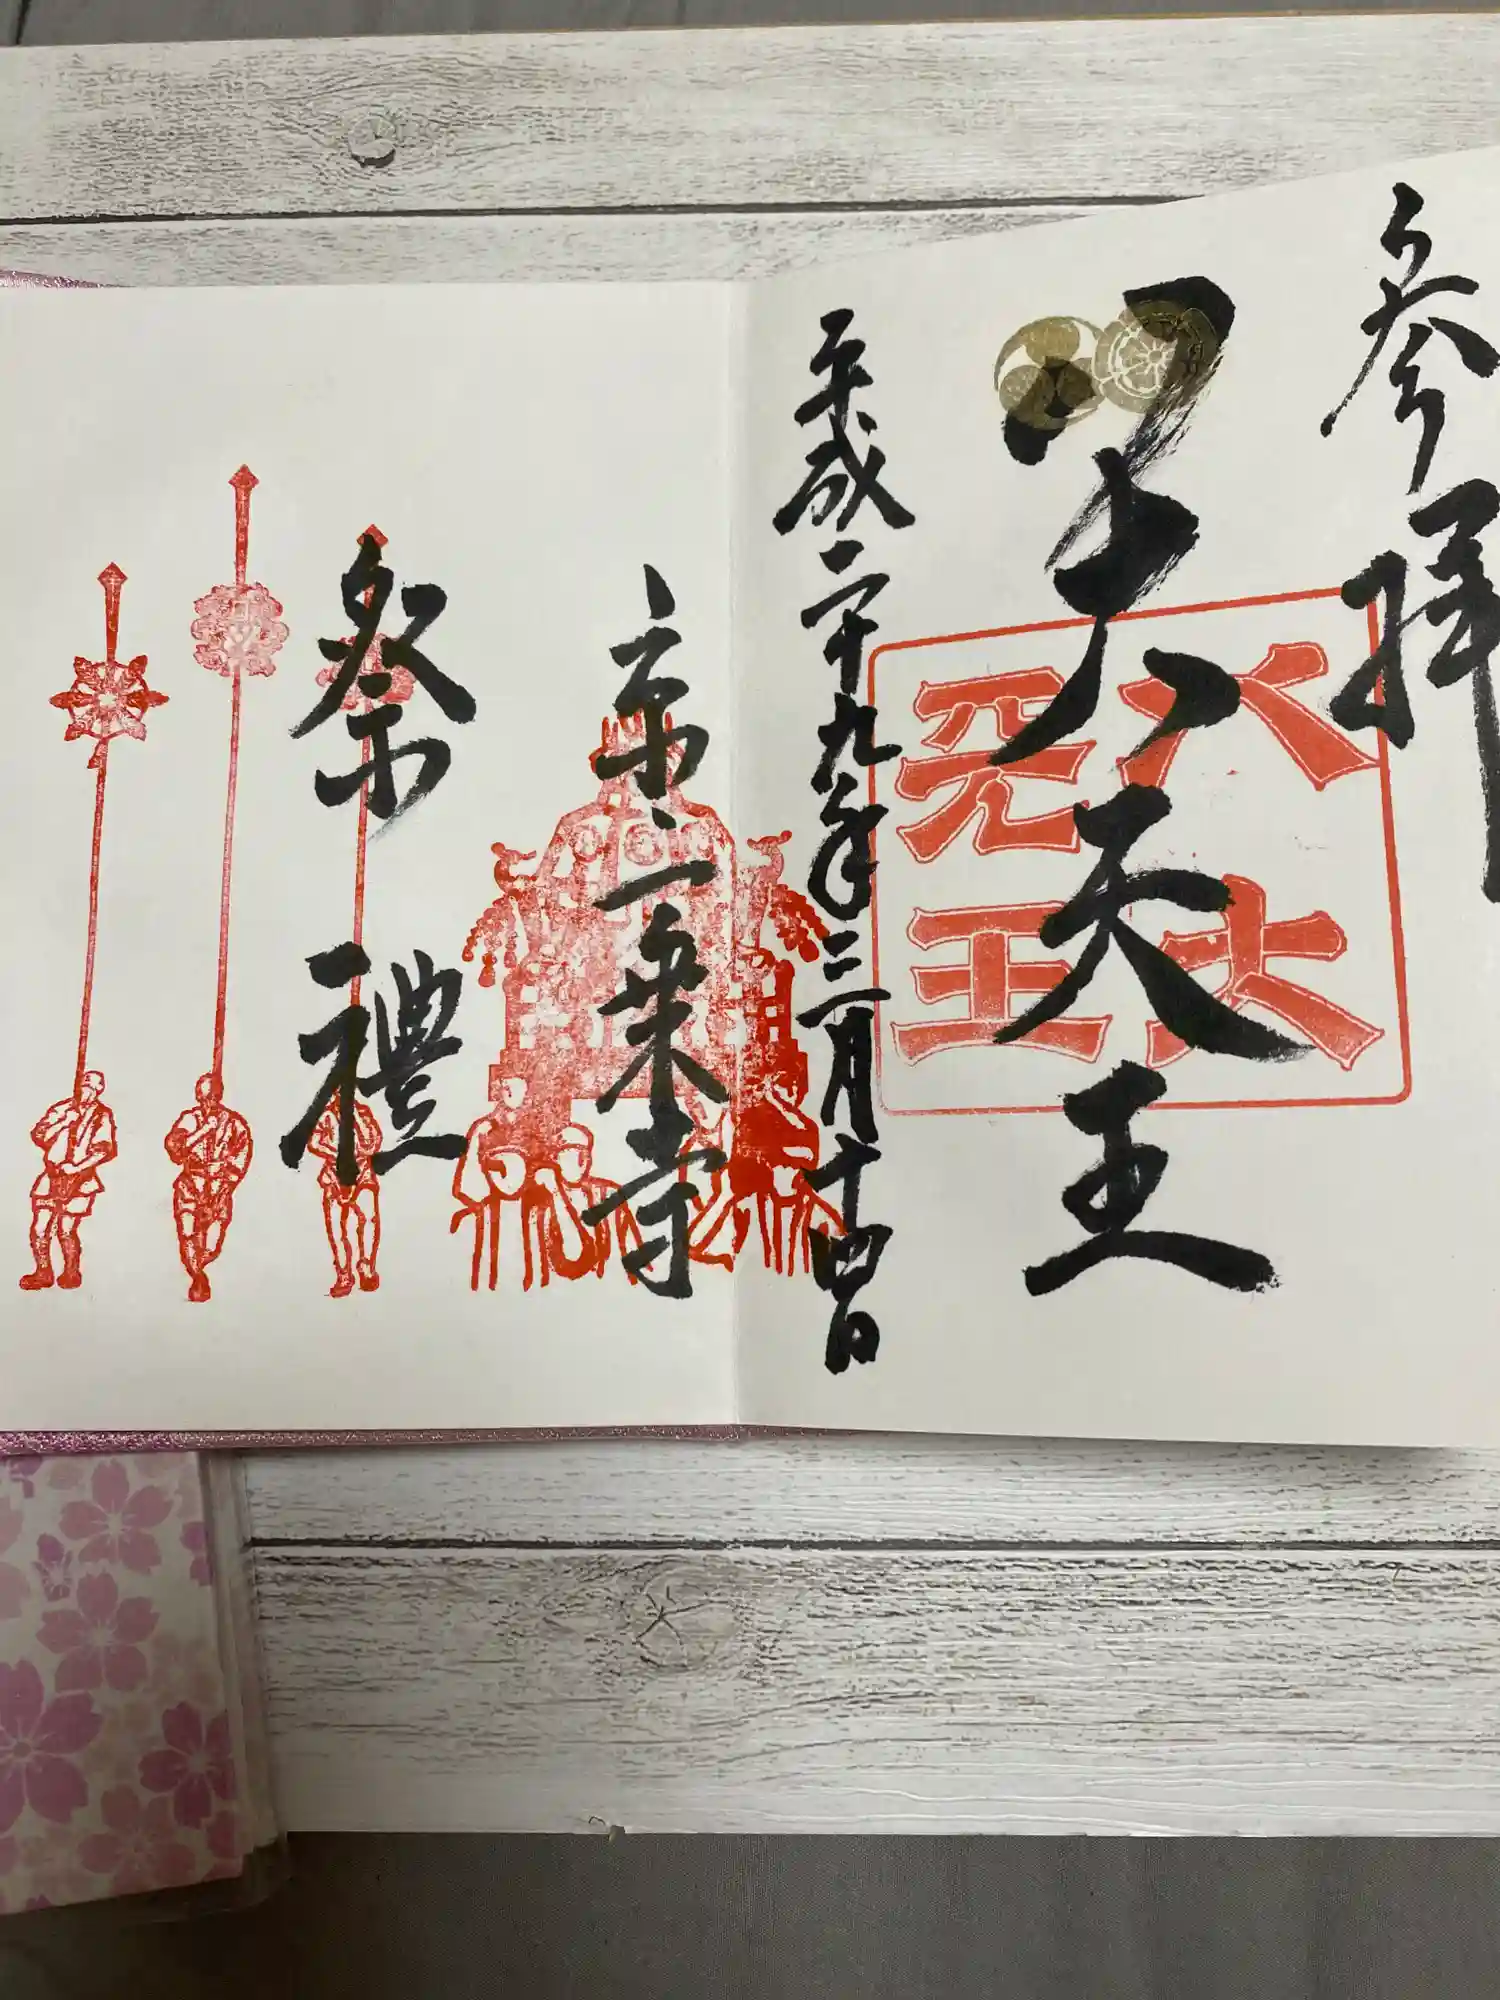 参拝
八大天王
八大
天王
平成二十九年三月十四日
京・一乗寺
祭禮